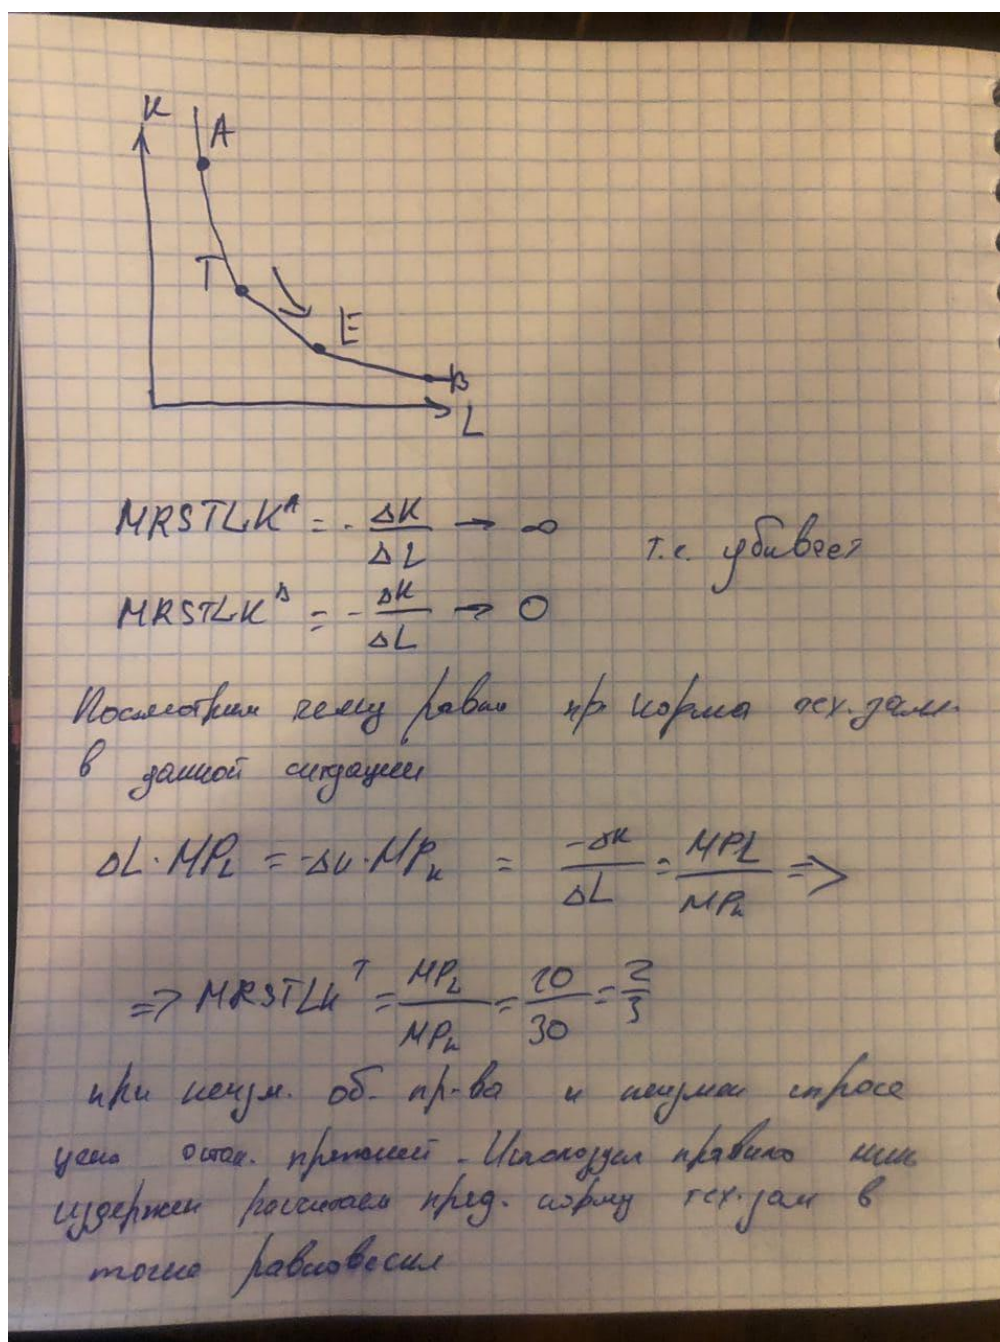 K
A
T
E
B
L
MRSTLK^A = - ΔK/ΔL → ∞
т.е. убывает
MRSTLK^B = - ΔK/ΔL → 0
Посмотрим чему равна пр. норма тех. зам.
в данной ситуации
ΔL · MP_L = -ΔK · MP_K = -ΔK/ΔL = MPL/MP_K =>
=> MRSTLK^T = MP_L/MP_K = 20/30 = 2/3
при неизм. об. пр-ва и неизмен спросе
цена остан. прежней. Используя правило мин
издержек рассчитаем пред. норму тех. зам в
точке равновесия